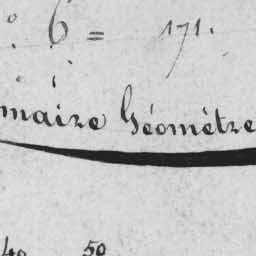 : 6 = 171.
maire Géomètre
40 50